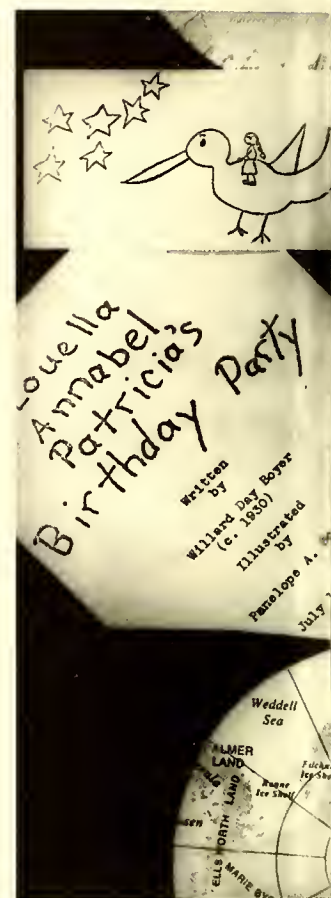 Louella
Annabel
Patricia's
Birthday Party
Written
by
Willard Day Boyer
(c. 1930)
Illustrated
by
Penelope A.
July
Weddell
Sea
ALMER
LAND
Ronne
Ice Shelf
Ice
sen
ELLS ORTH LAND
MARIE BY